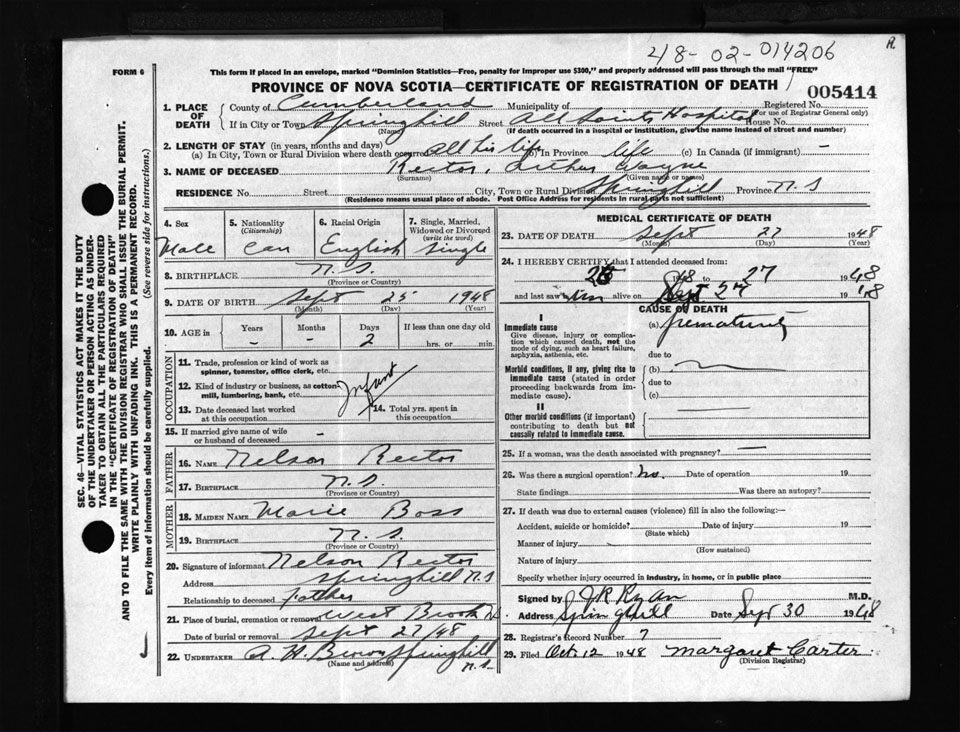 48-02-014206
R
FORM 6
This form if placed in an envelope, marked "Dominion Statistics—Free, penalty for improper use $300," and properly addressed will pass through the mail "FREE"
PROVINCE OF NOVA SCOTIA—CERTIFICATE OF REGISTRATION OF DEATH
005414
1. PLACE OF DEATH
County of Cumberland Municipality of Registered No.
(For use of Registrar General only)
If in City or Town Springhill Street All Saints Hospital House No.
(Name) (If death occurred in a hospital or institution, give the name instead of street and number)
2. LENGTH OF STAY (in years, months and days)
(a) In City, Town or Rural Division where death occurred All his life (b) In Province life (c) In Canada (if immigrant) —
3. NAME OF DECEASED Rector, Arthur Wayne
(Surname) (Given name or names)
RESIDENCE No. Street City, Town or Rural Division Springhill Province N.S
(Residence means usual place of abode. Post Office Address for residents in rural parts not sufficient)
4. Sex
Male
5. Nationality
(Citizenship)
Can
6. Racial Origin
English
7. Single, Married, Widowed or Divorced
(write the word)
Single
8. BIRTHPLACE N.S.
(Province or Country)
9. DATE OF BIRTH Sept 25 1948
(Month) (Day) (Year)
10. AGE in
Years Months Days If less than one day old
- - 2 hrs. or min.
OCCUPATION
11. Trade, profession or kind of work as spinner, teamster, office clerk, etc.
12. Kind of industry or business, as cotton mill, lumbering, bank, etc.
Infant
13. Date deceased last worked at this occupation
14. Total yrs. spent in this occupation
15. If married give name of wife or husband of deceased -
FATHER
16. NAME Nelson Rector
17. BIRTHPLACE N.S.
(Province or Country)
MOTHER
18. MAIDEN NAME Marie Boss
19. BIRTHPLACE N.S.
(Province or Country)
20. Signature of informant Nelson Rector
Address Springhill N.S
Relationship to deceased Father
21. Place of burial, cremation or removal West Brook NS
Date of burial or removal Sept 27/48
22. UNDERTAKER A. H. Brown Springhill
(Name and address) N.S.
MEDICAL CERTIFICATE OF DEATH
23. DATE OF DEATH Sept 27 1948
(Month) (Day) (Year)
24. I HEREBY CERTIFY that I attended deceased from:
48 to 27 1948
and last saw him alive on Sept 27 1948
CAUSE OF DEATH
I
Immediate cause
Give disease, injury or complication which caused death, not the mode of dying, such as heart failure, asphyxia, asthenia, etc.
(a) Prematurity
due to
Morbid conditions, if any, giving rise to immediate cause (stated in order proceeding backwards from immediate cause).
(b)
due to
(c)
II
Other morbid conditions (if important) contributing to death but not causally related to immediate cause.
25. If a woman, was the death associated with pregnancy? —
26. Was there a surgical operation? no. Date of operation 19
State findings Was there an autopsy?
27. If death was due to external causes (violence) fill in also the following:—
Accident, suicide or homicide? Date of injury 19
(State which)
Manner of injury
(How sustained)
Nature of injury
Specify whether injury occurred in industry, in home, or in public place
Signed by J R Ryan M.D.
Address Springhill Date Sept 30 1948
28. Registrar's Record Number 7
29. Filed Oct. 12 1948 Margaret Carter
(Division Registrar)
SEC. 46—VITAL STATISTICS ACT MAKES IT THE DUTY
OF THE UNDERTAKER OR PERSON ACTING AS UNDER-
TAKER TO OBTAIN ALL THE PARTICULARS REQUIRED
IN THE "CERTIFICATE OF REGISTRATION OF DEATH"
AND TO FILE THE SAME WITH THE DIVISION REGISTRAR WHO SHALL ISSUE THE BURIAL PERMIT.
WRITE PLAINLY WITH UNFADING INK. THIS IS A PERMANENT RECORD.
Every item of information should be carefully supplied. (See reverse side for instructions.)